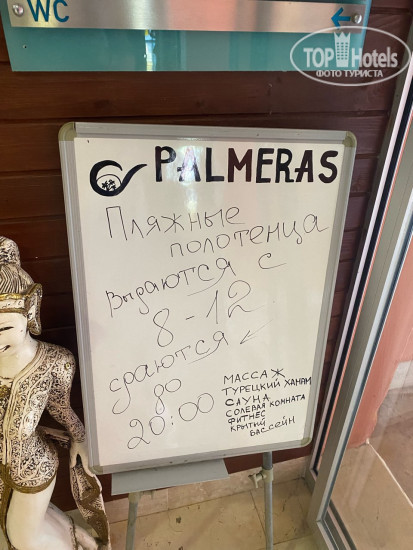 WC
TOP Hotels
ФОТО ТУРИСТА
PALMERAS
Пляжные
полотенца
выдаются с
8-12
сдаются
до
20:00
МАССАЖ
ТУРЕЦКИЙ ХАМАМ
САУНА
СОЛЕВАЯ КОМНАТА
ФИТНЕС
КРИТИЙ
БАССЕЙН